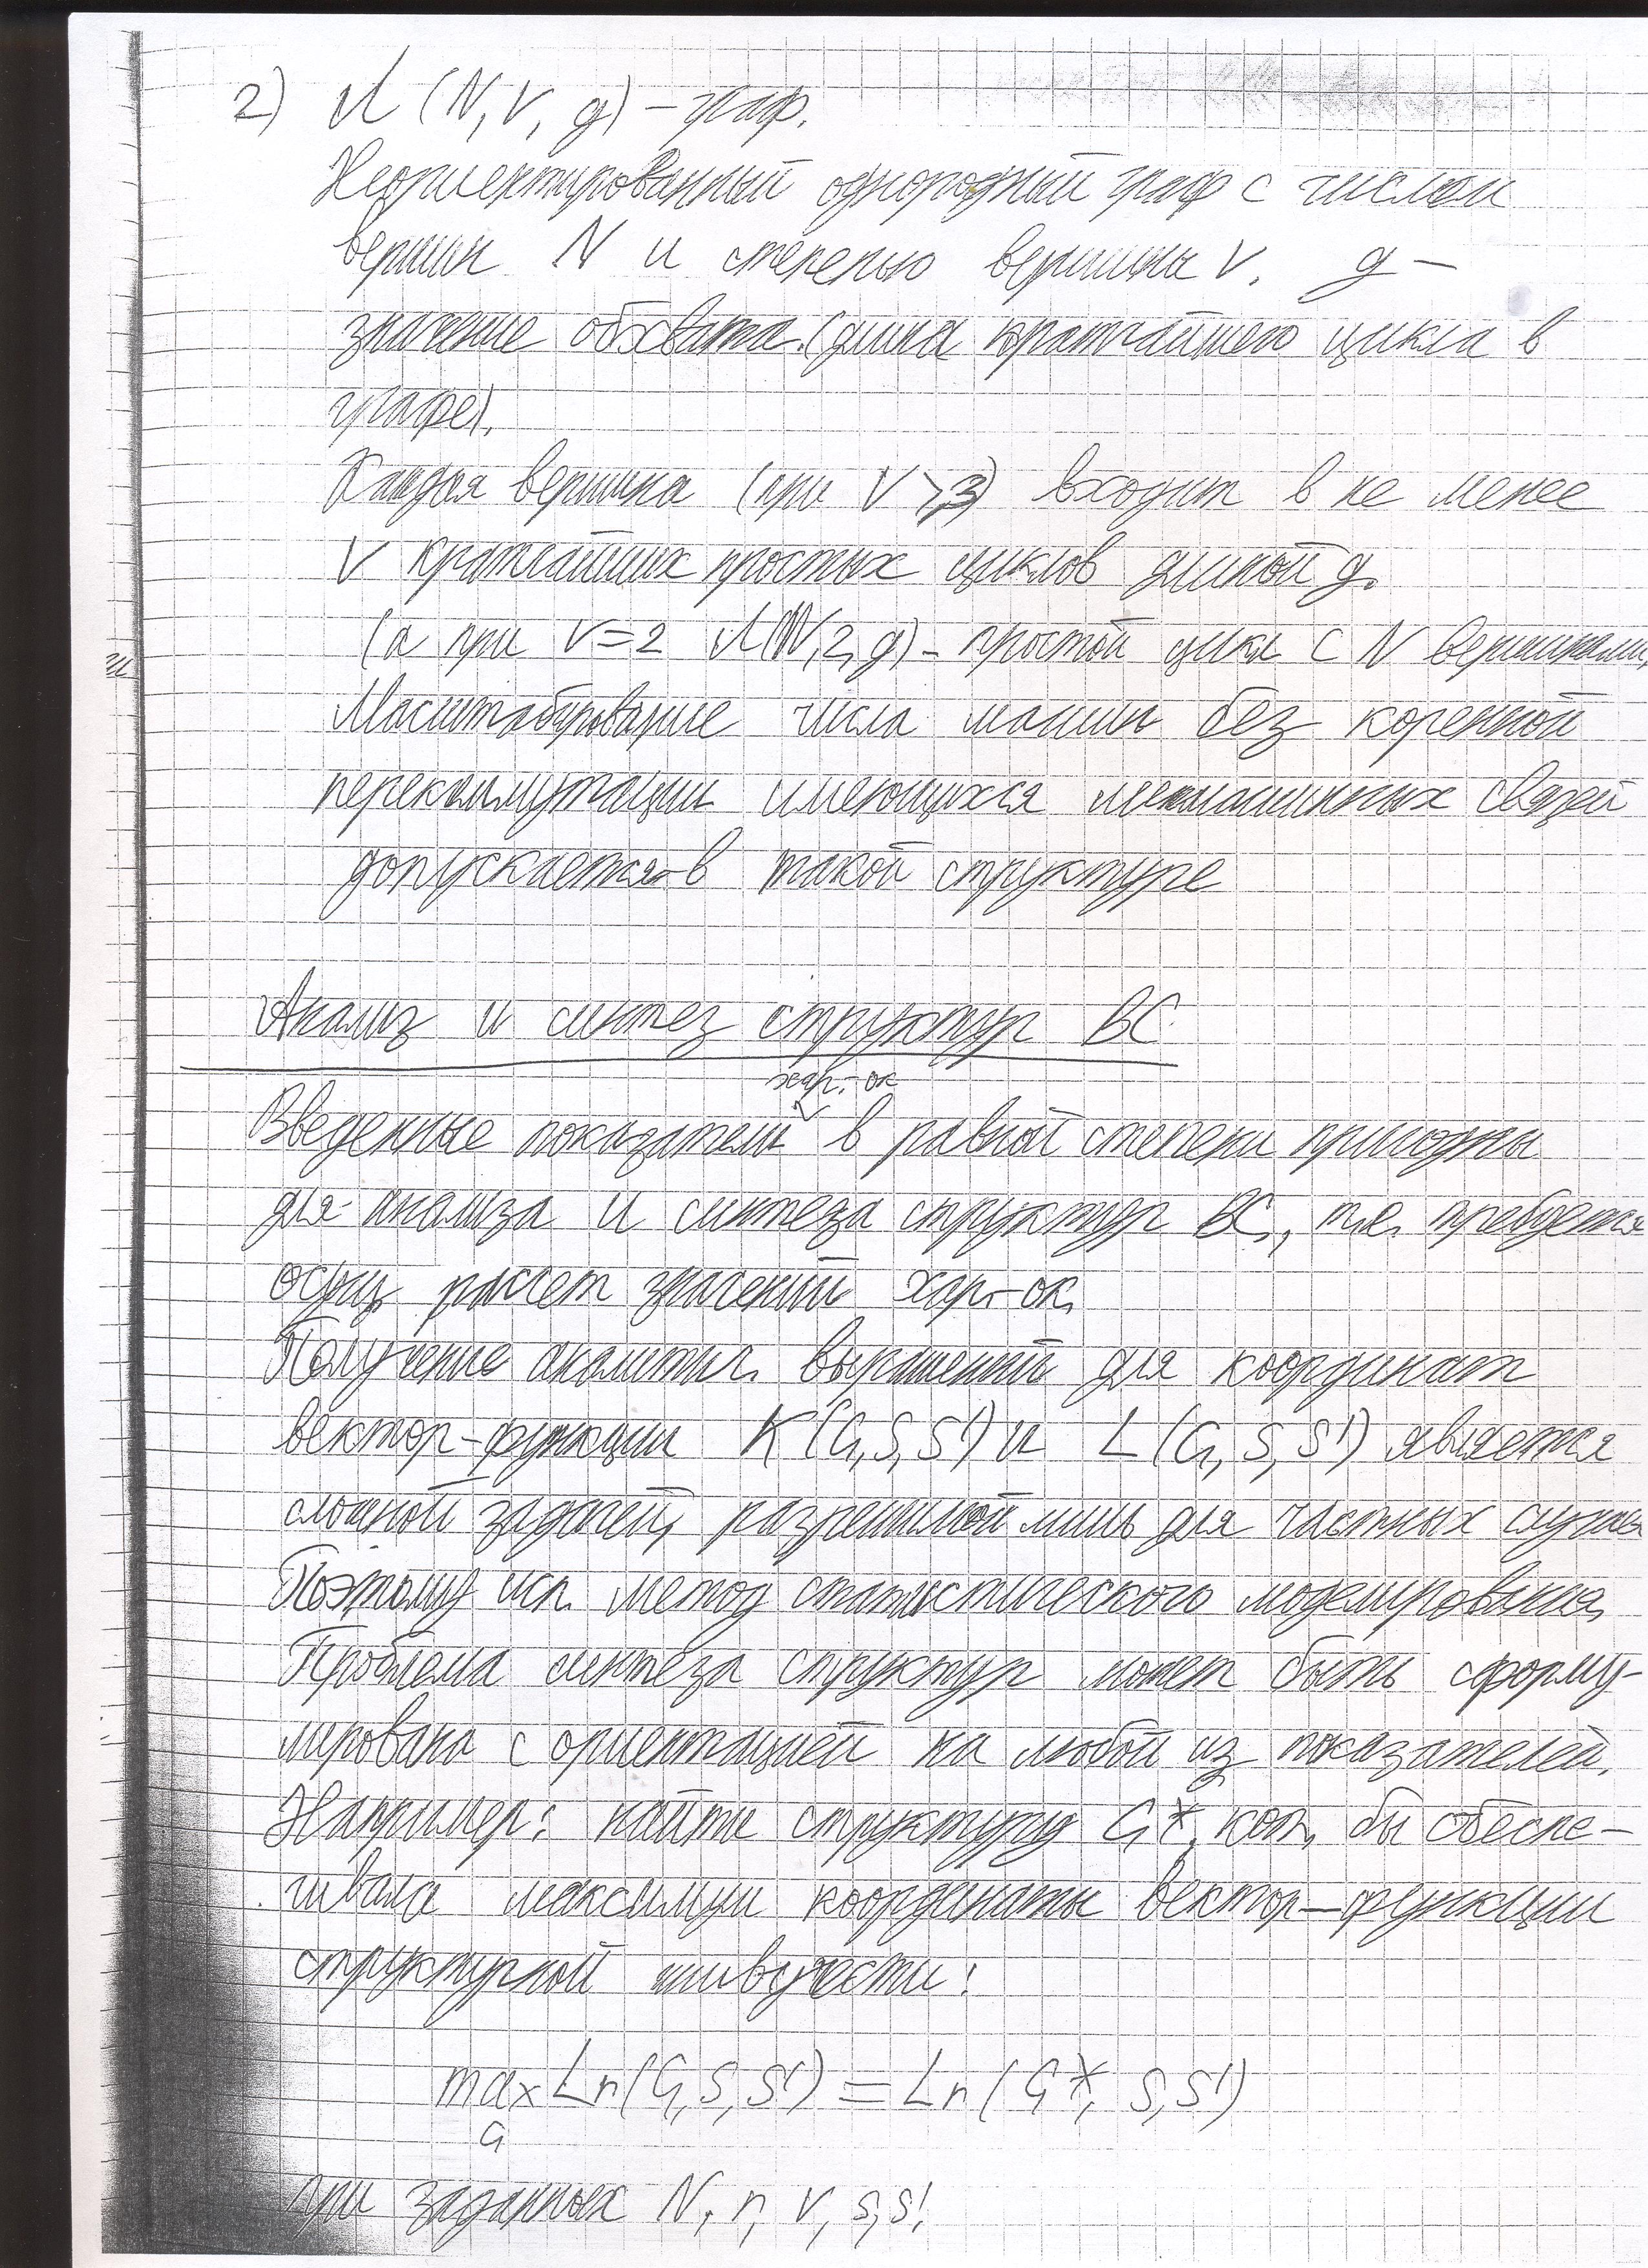 2) Λ (N, V, g) – граф.
Неориентированный однородный граф с числом
вершин N и степенью вершины V. g –
значение обхвата. (длина кратчайшего цикла в
графе).
Каждая вершина (при V ≥ 3) входит в не менее
V кратчайших простых циклов длиной g.
(а при V=2 Λ(N,2,g) – простой цикл с N вершинами,
Масштабирование числа машин без коренной
перекоммутации имеющихся межмашинных связей
допускается в такой структуре
Анализ и синтез структур ВС
хар-ок
Введенные показатели в равной степени пригодны
для анализа и синтеза структур ВС, т.е. требуется
расчет значений хар-ок.
Получение аналитич. выражений для координат
вектор-функции K(G,S,S') и L(G,S,S') является
сложной задачей, разрешимой лишь для частных случаев
Поэтому исп. метод статистического моделирования.
Проблема синтеза структур может быть сформу-
лирована с ориентацией на любой из показателей.
Например: найти структуру G*, кот. бы обеспе-
чивала максимум координаты вектор-функции
структурной живучести:
max Lr(G,S,S') = Lr(G*, S,S')
G
при заданных N, r, V, S,S'